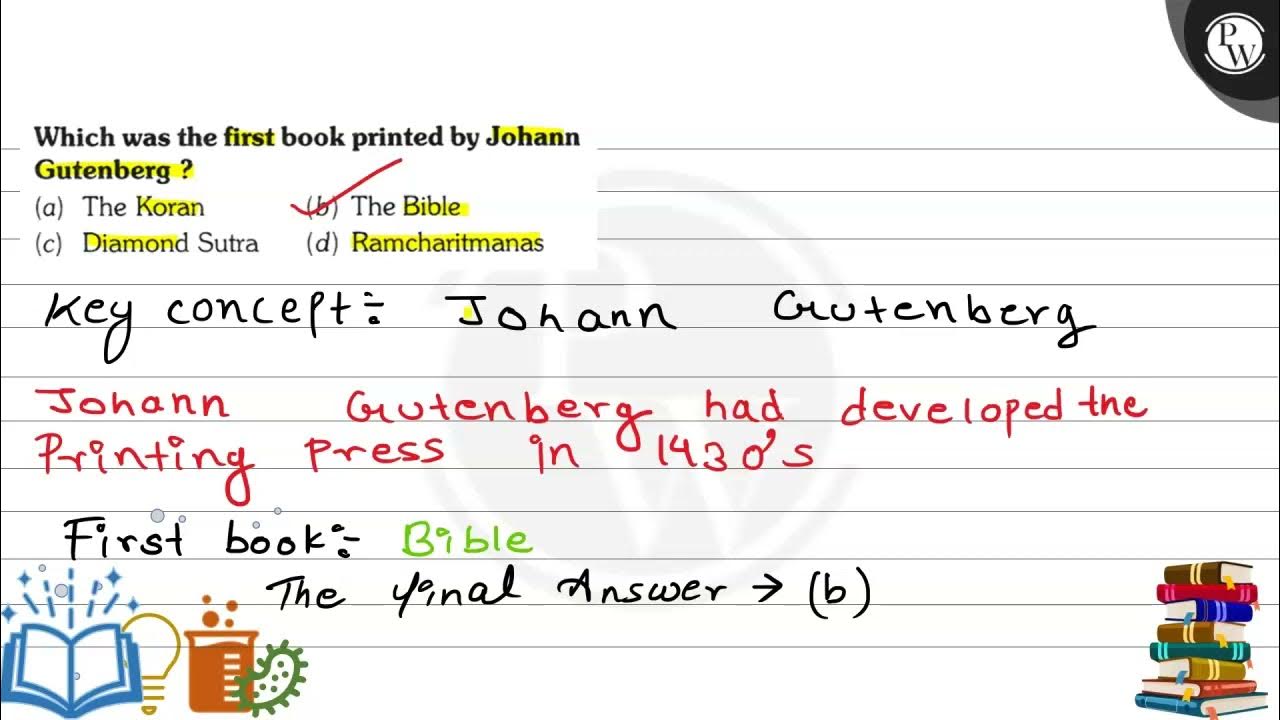 PW
Which was the first book printed by Johann
Gutenberg ?
(a) The Koran (b) The Bible
(c) Diamond Sutra (d) Ramcharitmanas
Key concept:- Johann Gutenberg
Johann Gutenberg had developed the
Printing press in 1430's
First book:- Bible
The final Answer → (b)